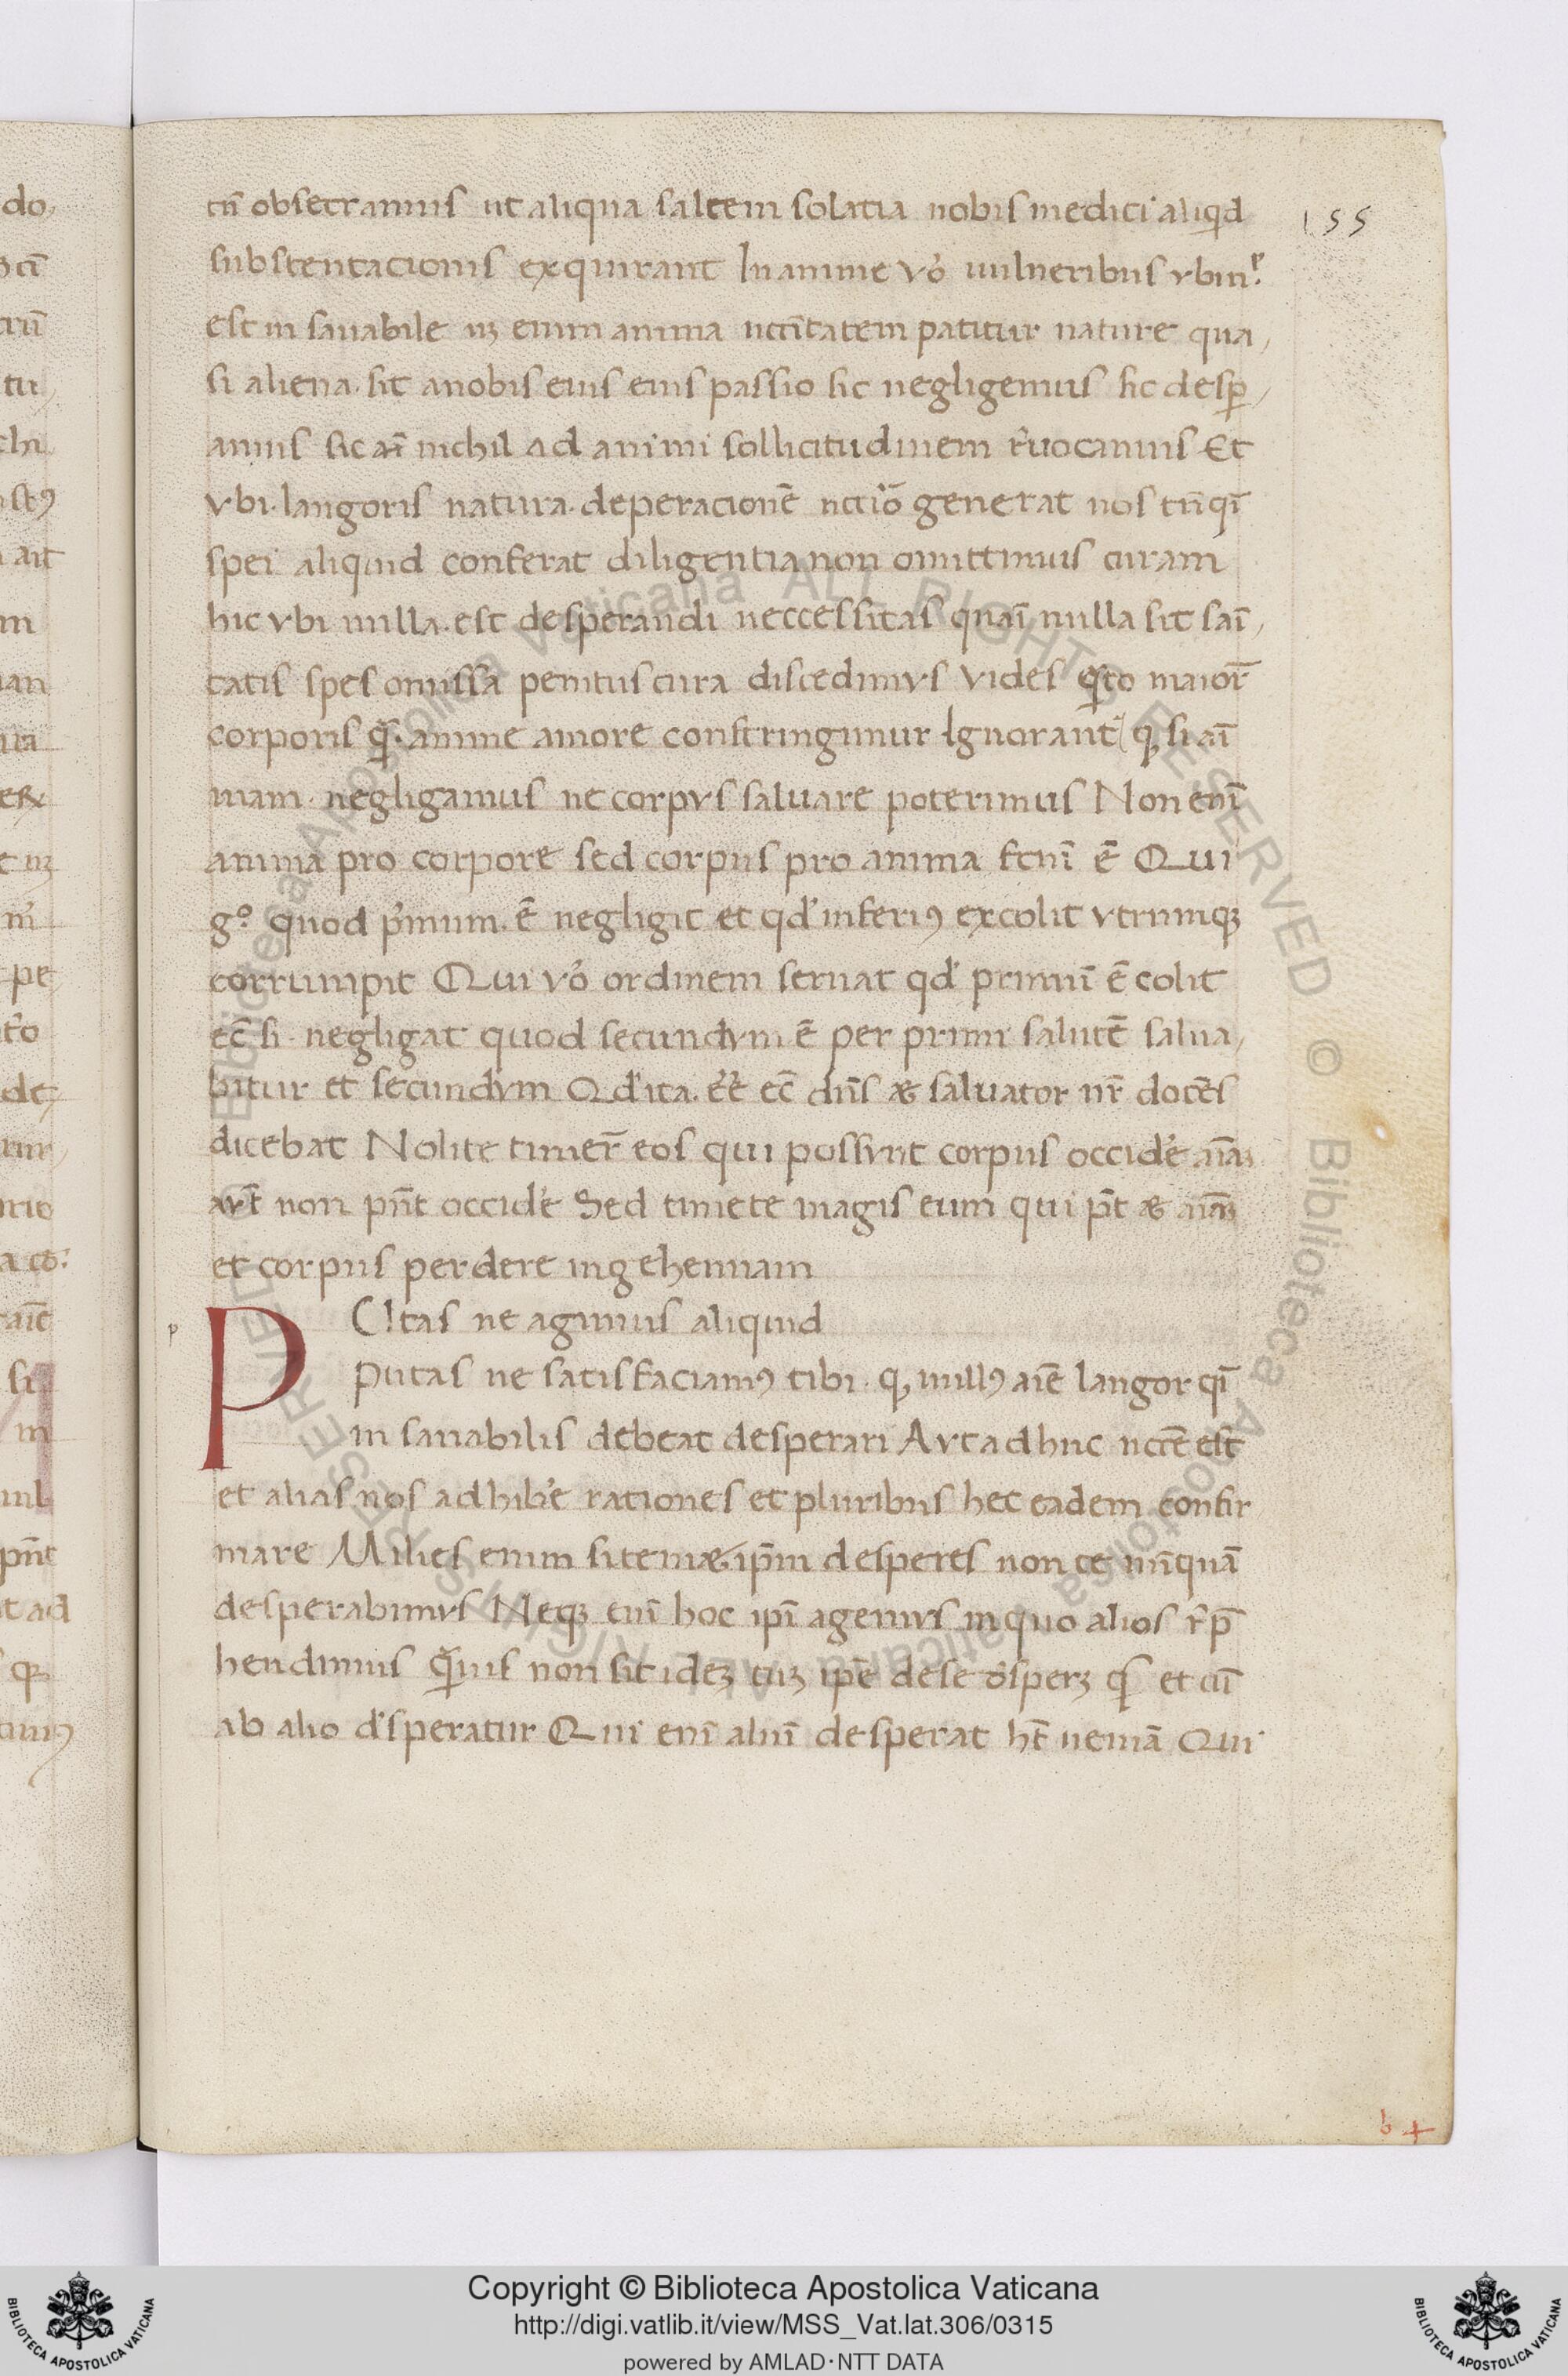 155
tn̄ obsecramus ut aliqua saltem solatia nobis medici aliqd
substentacionis exquirant In anime vo᷎ uulneribus vbi
est in sanabile nꝫ enim anima nccītatem patitur nature qua,
si aliena· sit anobis eius eius passio sic negligemus sic desꝑ,
amus sic aī nichil ad animi sollicitudinem r̄uocamus Et
vbi· langoris natura· deperacionē nccio᷎ generat nos tn̄ qī
spei aliquid conferat diligentia non omittimus curam
hic vbi nulla· est desperandi neccessitas quaī nulla sit saī,
tatis spes omissa penitus cura discedimvs Vides qͣto maior̄
corporis qͣ̄· anime amore constringimur Ignorant ꝙ si aī
mam· negligamus ne corpvs saluare poterimus Non enī
anima pro corpore sed corpus pro anima fcm̄ ē Qui
gº quod p̓mum· ē negligit et qd̓ inferiꝰ excolit vtrumqꝫ
corrumpit Qui vo᷎ ordinem seruat qd̓ primū ē colit
ec̄ si· negligat quod secundvm ē per primi salutē salua,
bitur et secundvm Qd̓ ita· ee᷎ ec̄ dn̄s & saluator nr̄ docēs
dicebat Nolite timer̄ eos qui possvnt corpus occide᷎ aīaꝫ
avt̄ non pn̄t occide᷎ Sed timete magis eum qui pt̄ & aīaꝫ
et corpus perdere in gehennam
p
P UTas ne agimus aliquid
Putas ne satisfaciamꝰ tibi· ꝙ nullꝰ aīe langor qī
in sanabilis debeat desperari Avt adhuc nccē est
et alias nos adhibe᷎ rationes et pluribus hec eadem confir
mare Milies enim si temæ ip̄m desperes non te nūquā
desperabimvs Neqꝫ enī hoc ipī agemvs in quo alios r̄p̄
hendimus qͣ̄uis non sit ideꝫ cuꝫ ip̄e de se d̓speꝫ qͣ̄ et cū
ab alio d̓speratur Qui enī aliū desperat ht̄ ueniā Qui
b +
Copyright © Biblioteca Apostolica Vaticana
http://digi.vatlib.it/view/MSS_Vat.lat.306/0315
powered by AMLAD·NTT DATA
BIBLIOTECA APOSTOLICA VATICANA
BIBLIOTECA APOSTOLICA VATICANA